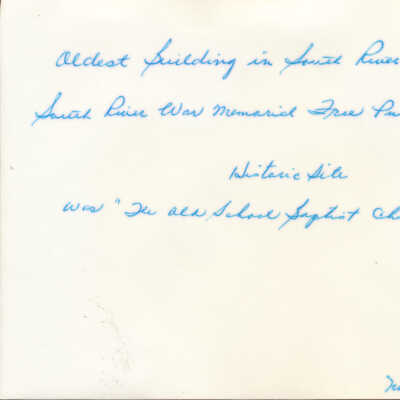 Oldest Building in South River
South River War Memorial Free Pu
Historic Site
was "The Old School Baptist Ch